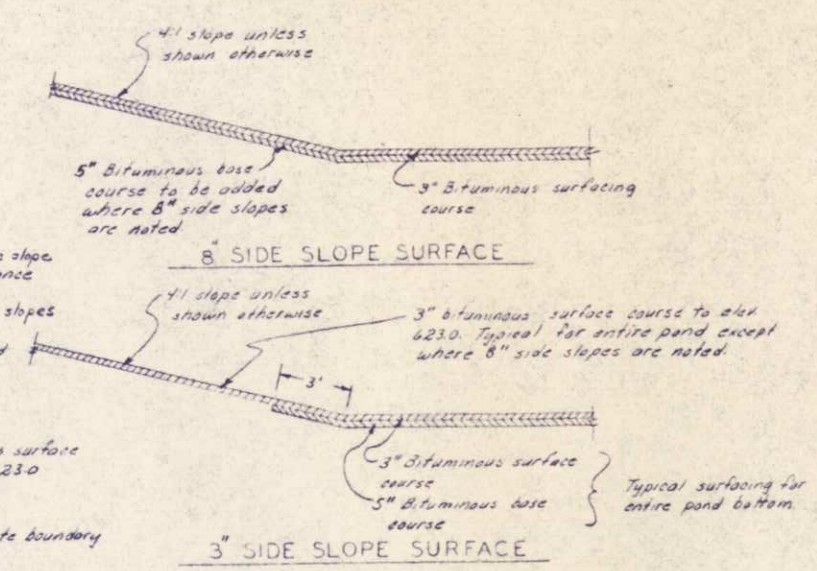 4:1 slope unless
shown otherwise
5" Bituminous base
course to be added
where 8" side slopes
are noted.
3" Bituminous surfacing
course
8" SIDE SLOPE SURFACE
slope
slopes
4:1 slope unless
shown otherwise
3" bituminous surface course to elev.
623.0. Typical for entire pond except
where 8" side slopes are noted.
3'
surface
23.0
3" Bituminous surface
course
5" Bituminous base
course
Typical surfacing for
entire pond bottom
boundary
3" SIDE SLOPE SURFACE